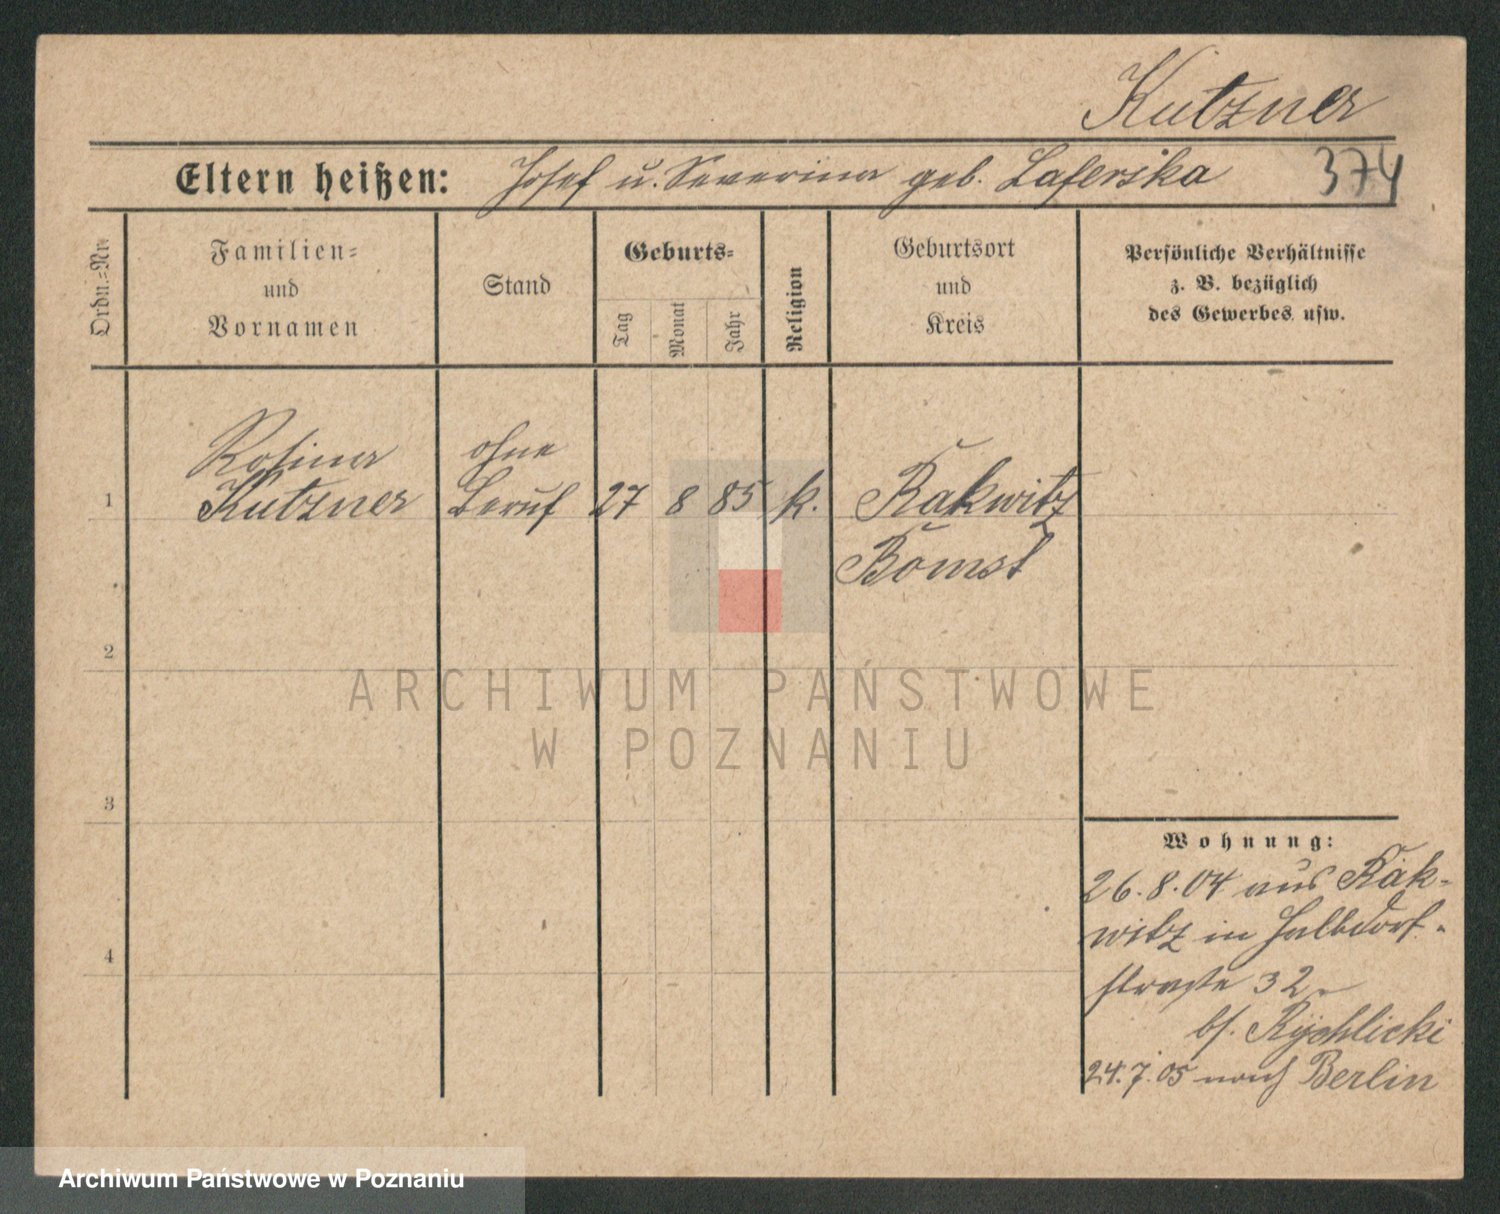 Kutzner
Eltern heißen: Josef u. Severina geb. Laferska 374
Ordn.=Nr.
Familien=
und
Vornamen
Stand
Geburts=
Tag
Monat
Jahr
Religion
Geburtsort
und
Kreis
Persönliche Verhältnisse
z. B. bezüglich
des Gewerbes usw.
Rosina ohne
1 Kutzner Beruf 27 8 85 k. Rakwitz
Bomst
2
3
4
Wohnung:
26.8.04 aus Rak-
witz in Halbdorf-
straße 32
bf. Rychlicki
24.7.05 nach Berlin
ARCHIWUM PAŃSTWOWE
W POZNANIU
Archiwum Państwowe w Poznaniu